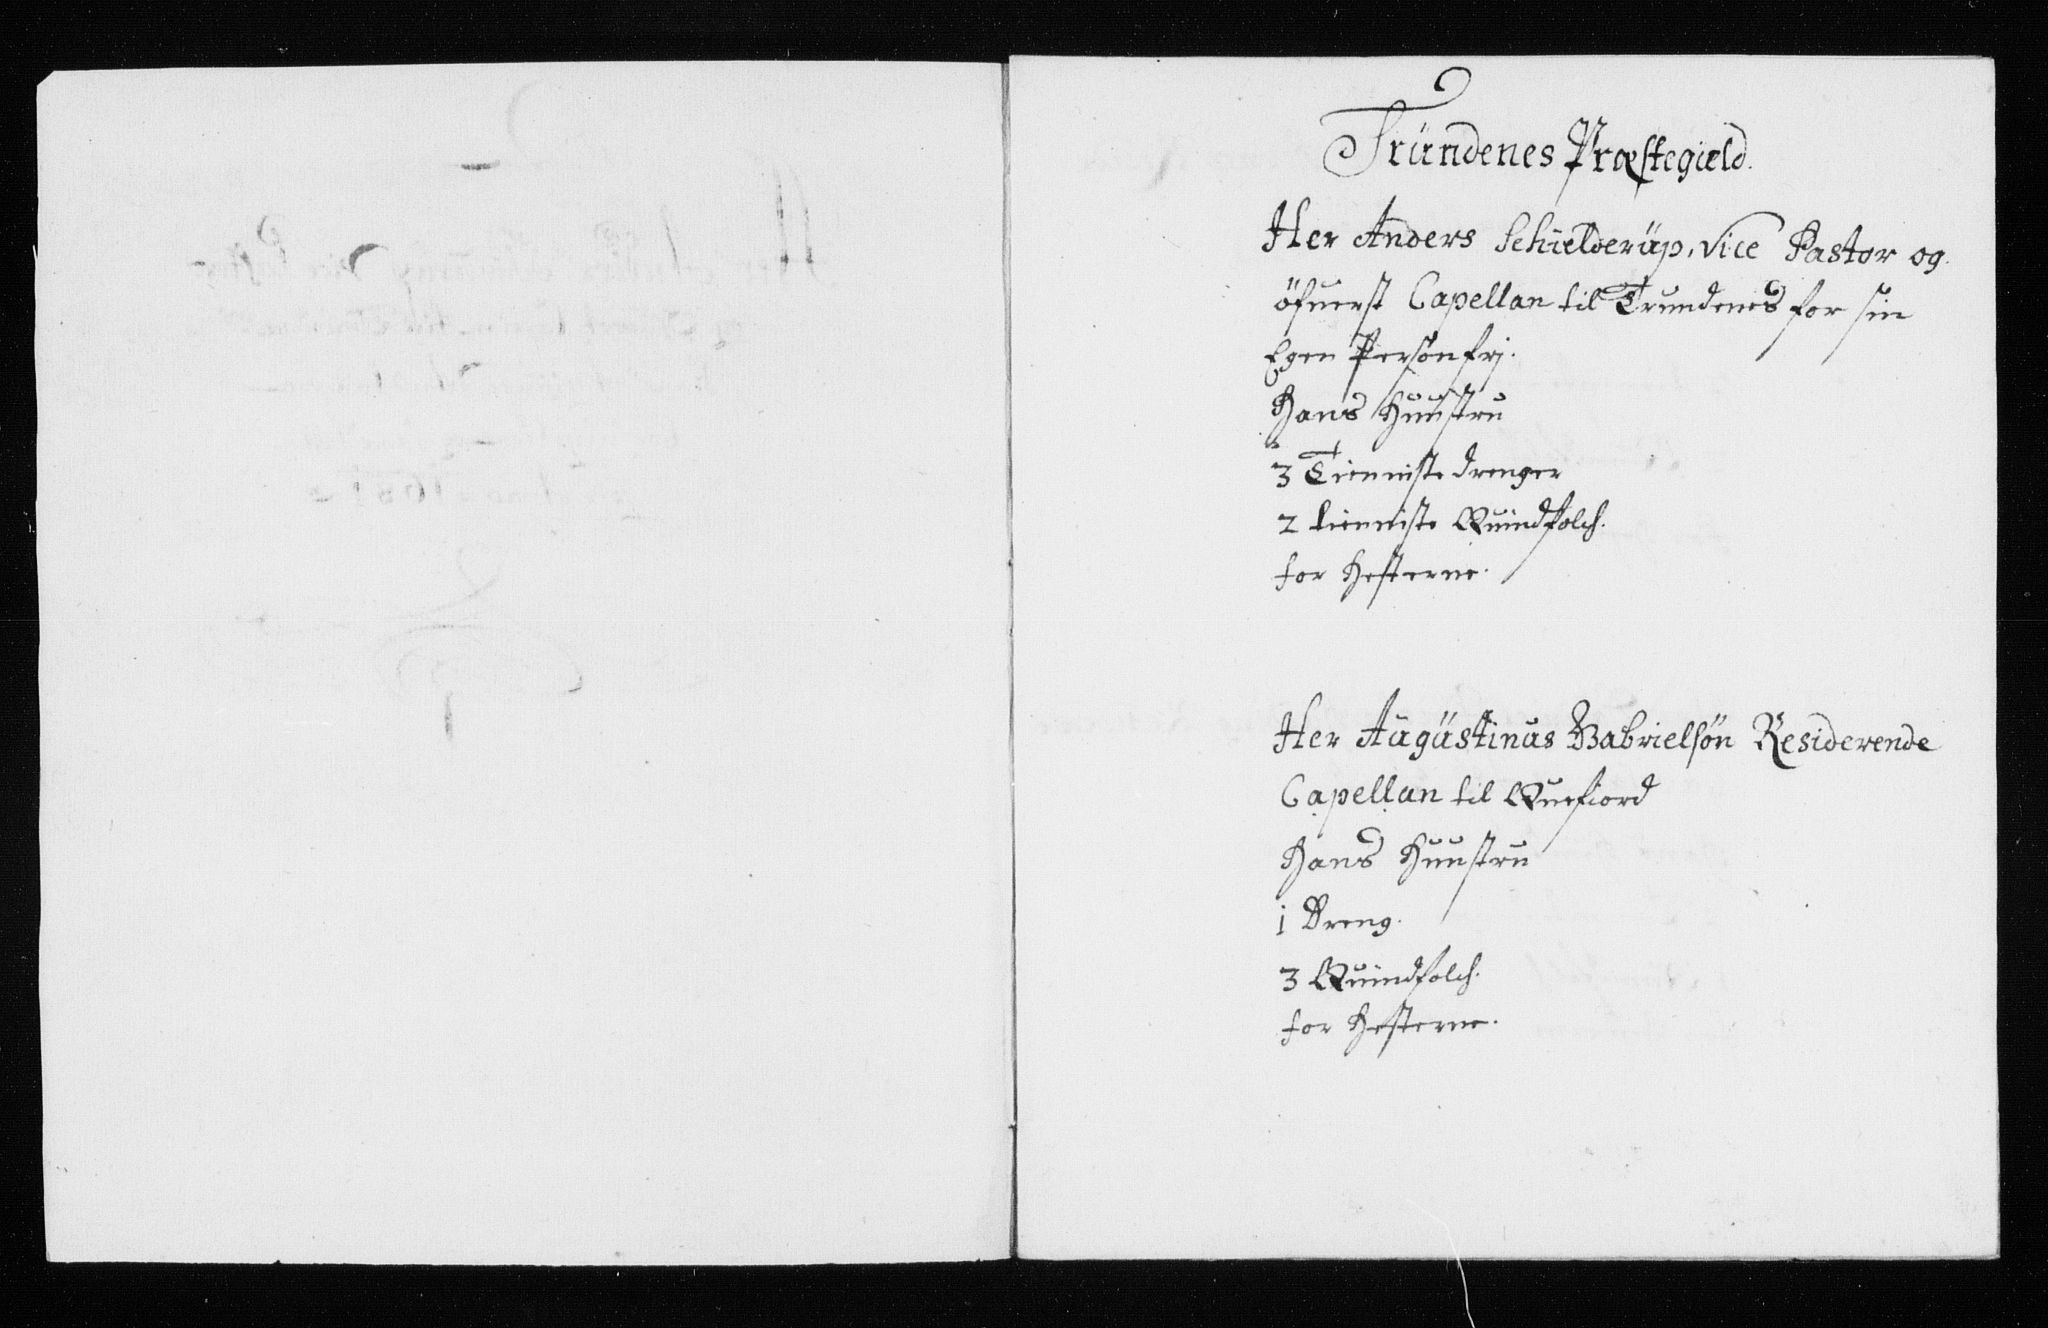 Trŭndenes Præstegield.
Her Anders Schielderŭp, Vice Pastor og
öfuerst Capellan til Trundenes for sin
Egen Person frj.
Hans Huustru
3 Tienniste drenger
2 tienniste Quindfolch.
for Hesterne.
Her Augŭstinus Gabrielsön Residerende
Capellan til Quefiord
Hans Huustru
1 Dreng.
3 Quindfolch.
for Hesterne.